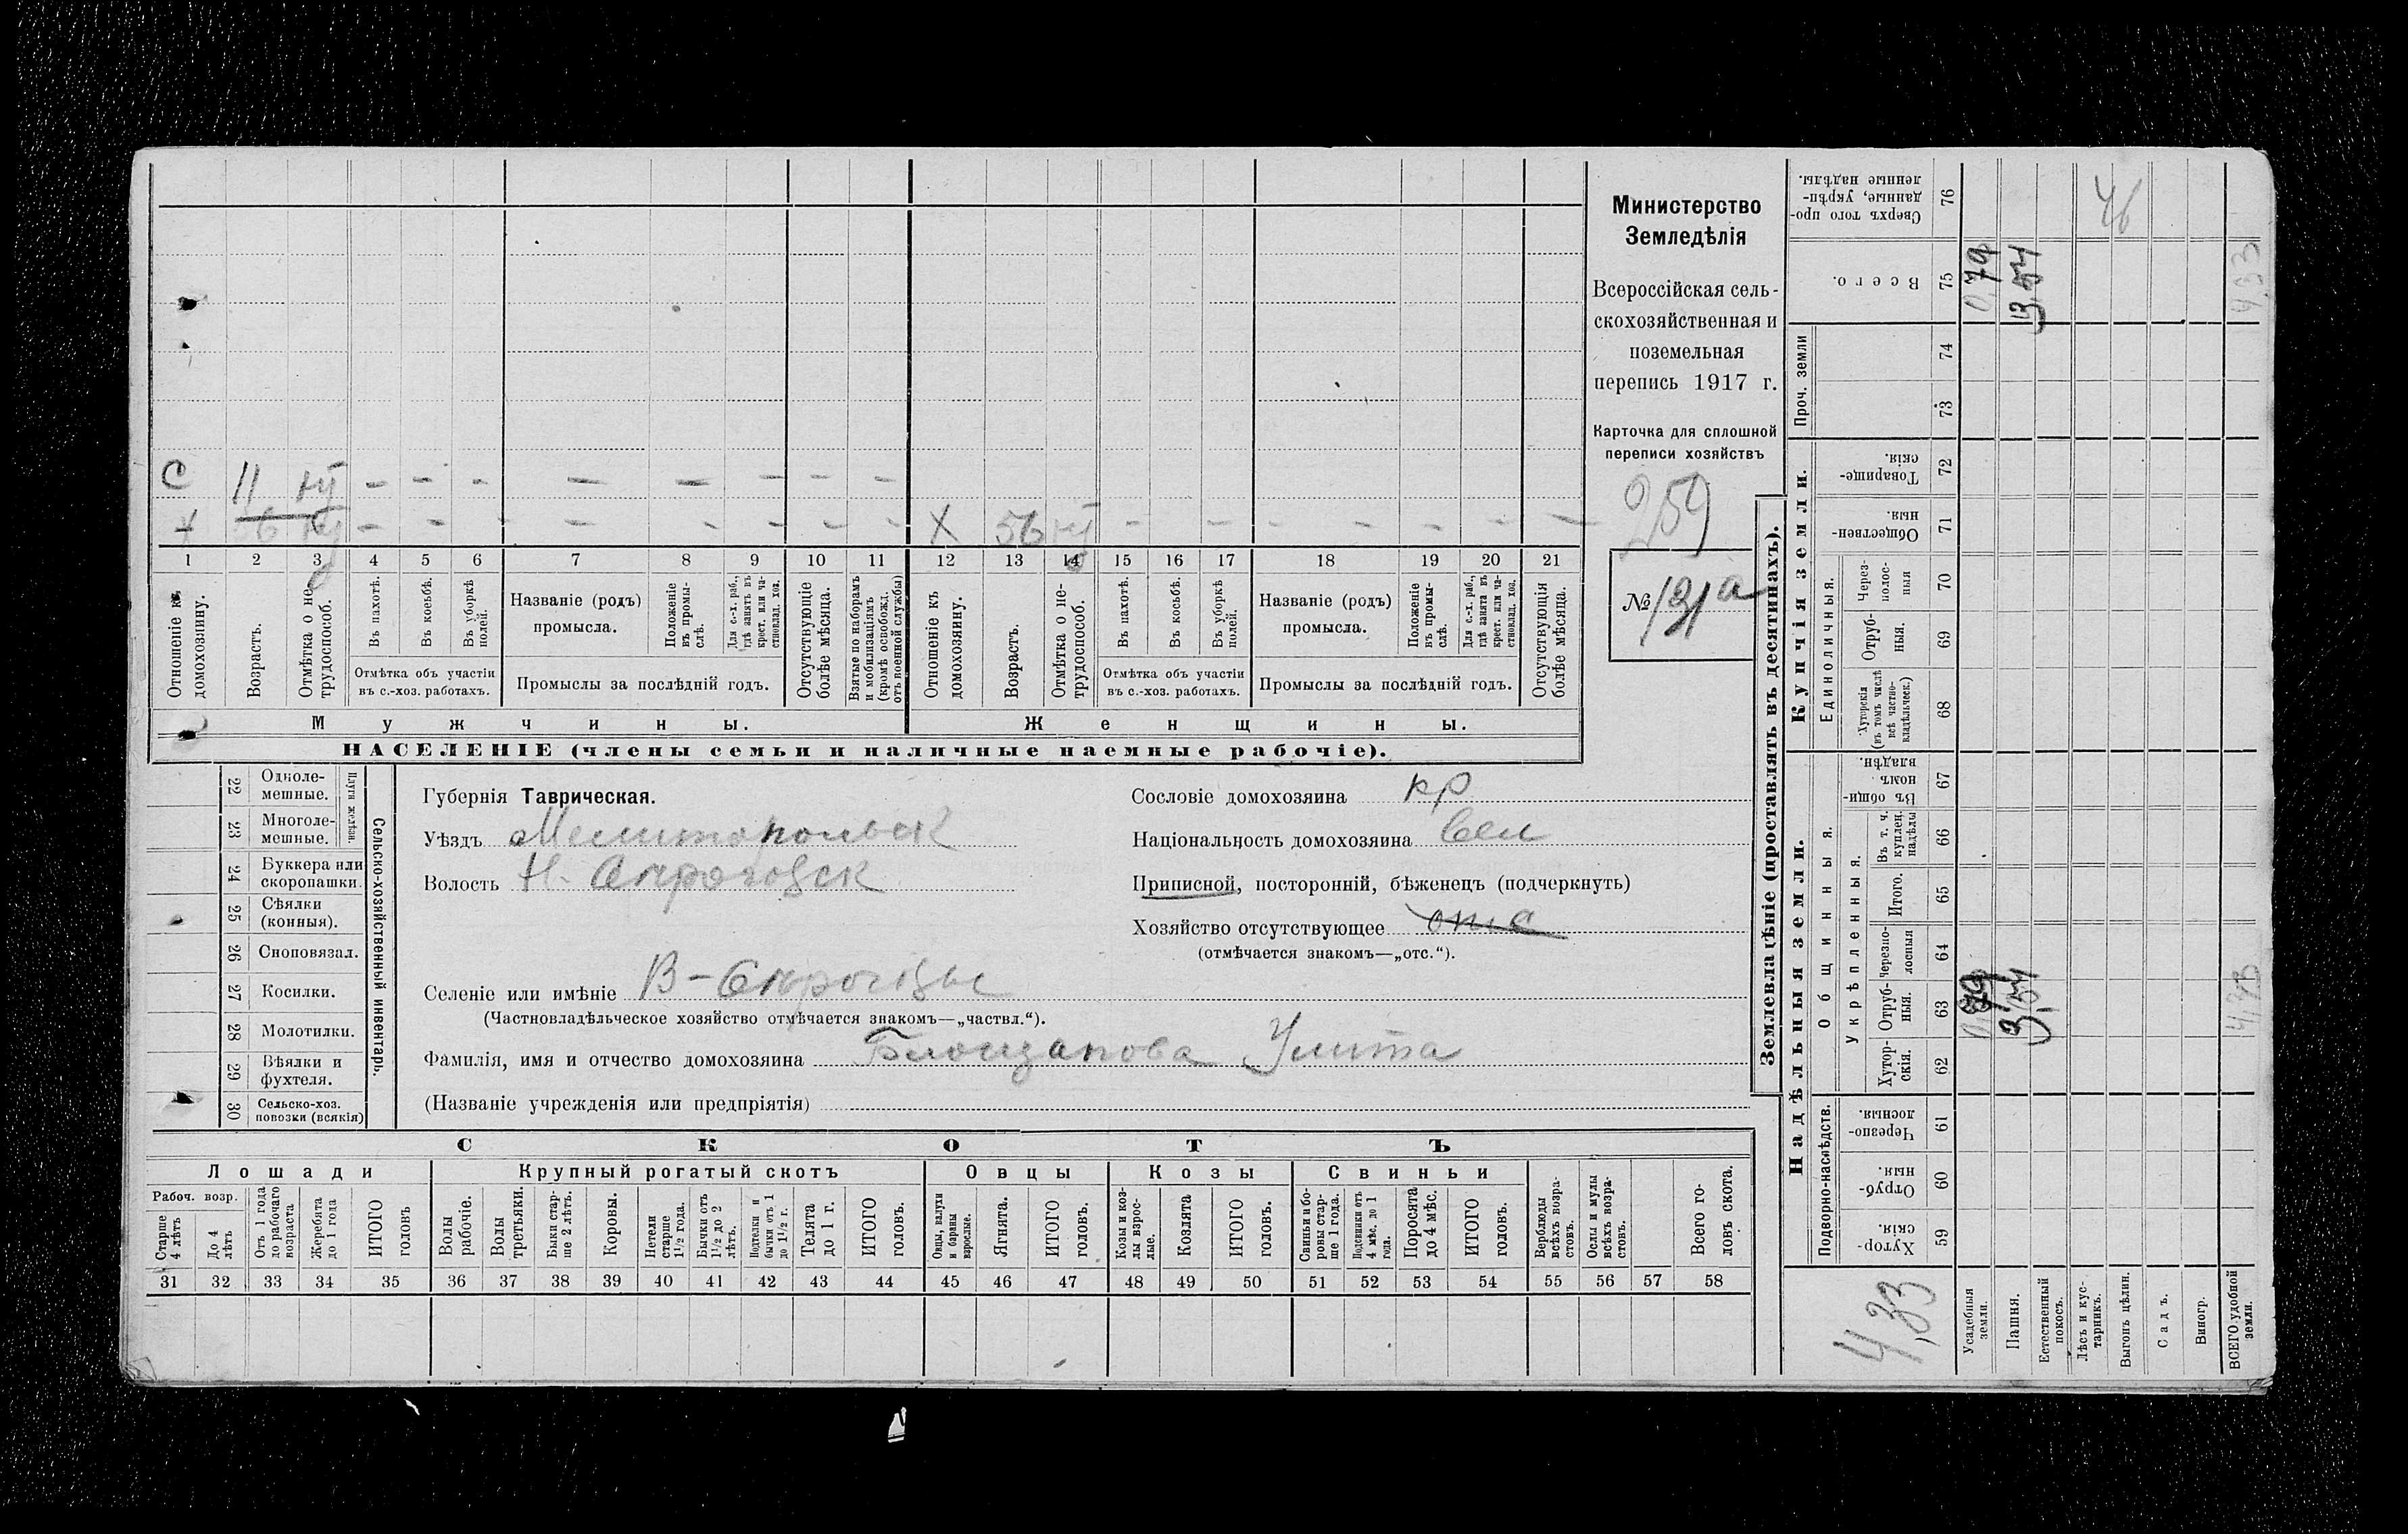 Министерство
Земледѣлія
Всероссійская сель-
скохозяйственная и
поземельная
перепись 1917 г.
Карточка для сплошной
переписи хозяйствъ
259
№ 131а
С 11 – – – – – – – –
Х 56
1 2 3 4 5 6 7 8 9 10 11 12 13 14 15 16 17 18 19 20 21
Отношеніе къ домохозяину.
Возрастъ.
Отмѣтка о не-трудоспособ.
Въ пахотѣ.
Въ косьбѣ.
Въ уборкѣ полей.
Отмѣтка объ участіи
въ с.-хоз. работахъ.
Названіе (родъ)
промысла.
Положеніе въ промы-слѣ.
Для с.-х. раб., гдѣ занятъ въ крест. или ча-стновлад. хоз.
Промыслы за послѣдній годъ.
Отсутствующіе болѣе мѣсяца.
Взятые по наборамъ и мобилизаціямъ (кромѣ освобожд. отъ военной службы)
Отношеніе къ домохозяину.
Возрастъ.
Отмѣтка о не-трудоспособ.
Въ пахотѣ.
Въ косьбѣ.
Въ уборкѣ полей.
Отмѣтка объ участіи
въ с.-хоз. работахъ.
Названіе (родъ)
промысла.
Положеніе въ промы-слѣ.
Для с.-х. раб., гдѣ занята въ крест. или ча-стновлад. хоз.
Промыслы за послѣдній годъ.
Отсутствующія болѣе мѣсяца.
Мужчины.
Женщины.
НАСЕЛЕНІЕ (члены семьи и наличные наемные рабочіе).
Сельско-хозяйственный инвентарь.
Плуги желѣзн.
22 Одноле-мешные.
23 Многоле-мешные.
24 Буккера или скоропашки.
25 Сѣялки (конныя).
26 Сноповязал.
27 Косилки.
28 Молотилки.
29 Вѣялки и фухтеля.
30 Сельско-хоз. повозки (всякія)
Губернія Таврическая.
Уѣздъ Мелитопольск
Волость
Селеніе или имѣніе
(Частновладѣльческое хозяйство отмѣчается знакомъ—„частвл.“).
Фамилія, имя и отчество домохозяина Улита
(Названіе учрежденія или предпріятія)
Сословіе домохозяина кр
Національность домохозяина вел
Приписной, посторонній, бѣженецъ (подчеркнуть)
Хозяйство отсутствующее отс
(отмѣчается знакомъ—„отс.“).
СКОТЪ
Лошади
Крупный рогатый скотъ
Овцы
Козы
Свиньи
Рабоч. возр.
Старше 4 лѣтъ
До 4 лѣтъ
Отъ 1 года до рабочаго возраста
Жеребята до 1 года
ИТОГО головъ
Волы рабочіе.
Волы третьяки.
Быки стар-ше 2 лѣтъ.
Коровы.
Нетели старше 1½ года.
Бычки отъ 1½ до 2 лѣтъ.
Подтелки и бычки отъ 1 до 1½ г.
Телята до 1 г.
ИТОГО головъ.
Овцы, валухи и бараны взрослые.
Ягнята.
ИТОГО головъ.
Козы и коз-лы взрос-лые.
Козлята
ИТОГО головъ.
Свиньи и бо-ровы стар-ше 1 года.
Подсвинки отъ 4 мѣс. до 1 года.
Поросята до 4 мѣс.
ИТОГО головъ.
Верблюды всѣхъ возра-стовъ.
Ослы и мулы всѣхъ возра-стовъ.
Всего го-ловъ скота.
31 32 33 34 35 36 37 38 39 40 41 42 43 44 45 46 47 48 49 50 51 52 53 54 55 56 57 58
Землевладѣніе (проставлять въ десятинахъ).
Надѣльныя земли.
Купчія земли.
Проч. земли
Подворно-наслѣдств.
Общинныя.
Укрѣпленныя.
Единоличныя.
Сверхъ того про-данные, укрѣп-ленные надѣлы. 76
Всего. 75
74
73
Товарище-скія. 72
Обществен-ныя. 71
Через-полос-ныя 70
Отруб-ныя. 69
Хуторскія (въ томъ числѣ всѣ частно-владѣльческ.) 68
Въ общи-номъ владѣн. 67
Въ т. ч. куплен. надѣлы 66
Итого. 65
Черезпо-лосныя 64
Отруб-ныя. 63
Хутор-скія. 62
Черезпо-лосныя. 61
Отруб-ныя. 60
Хутор-скія. 59
Усадебныя земли.
Пашня.
Естественный покосъ.
Лѣсъ и кус-тарникъ.
Выгонъ цѣлин.
Садъ.
Виногр.
ВСЕГО удобной земли.
0,79
3,54
4,33
4,33
46